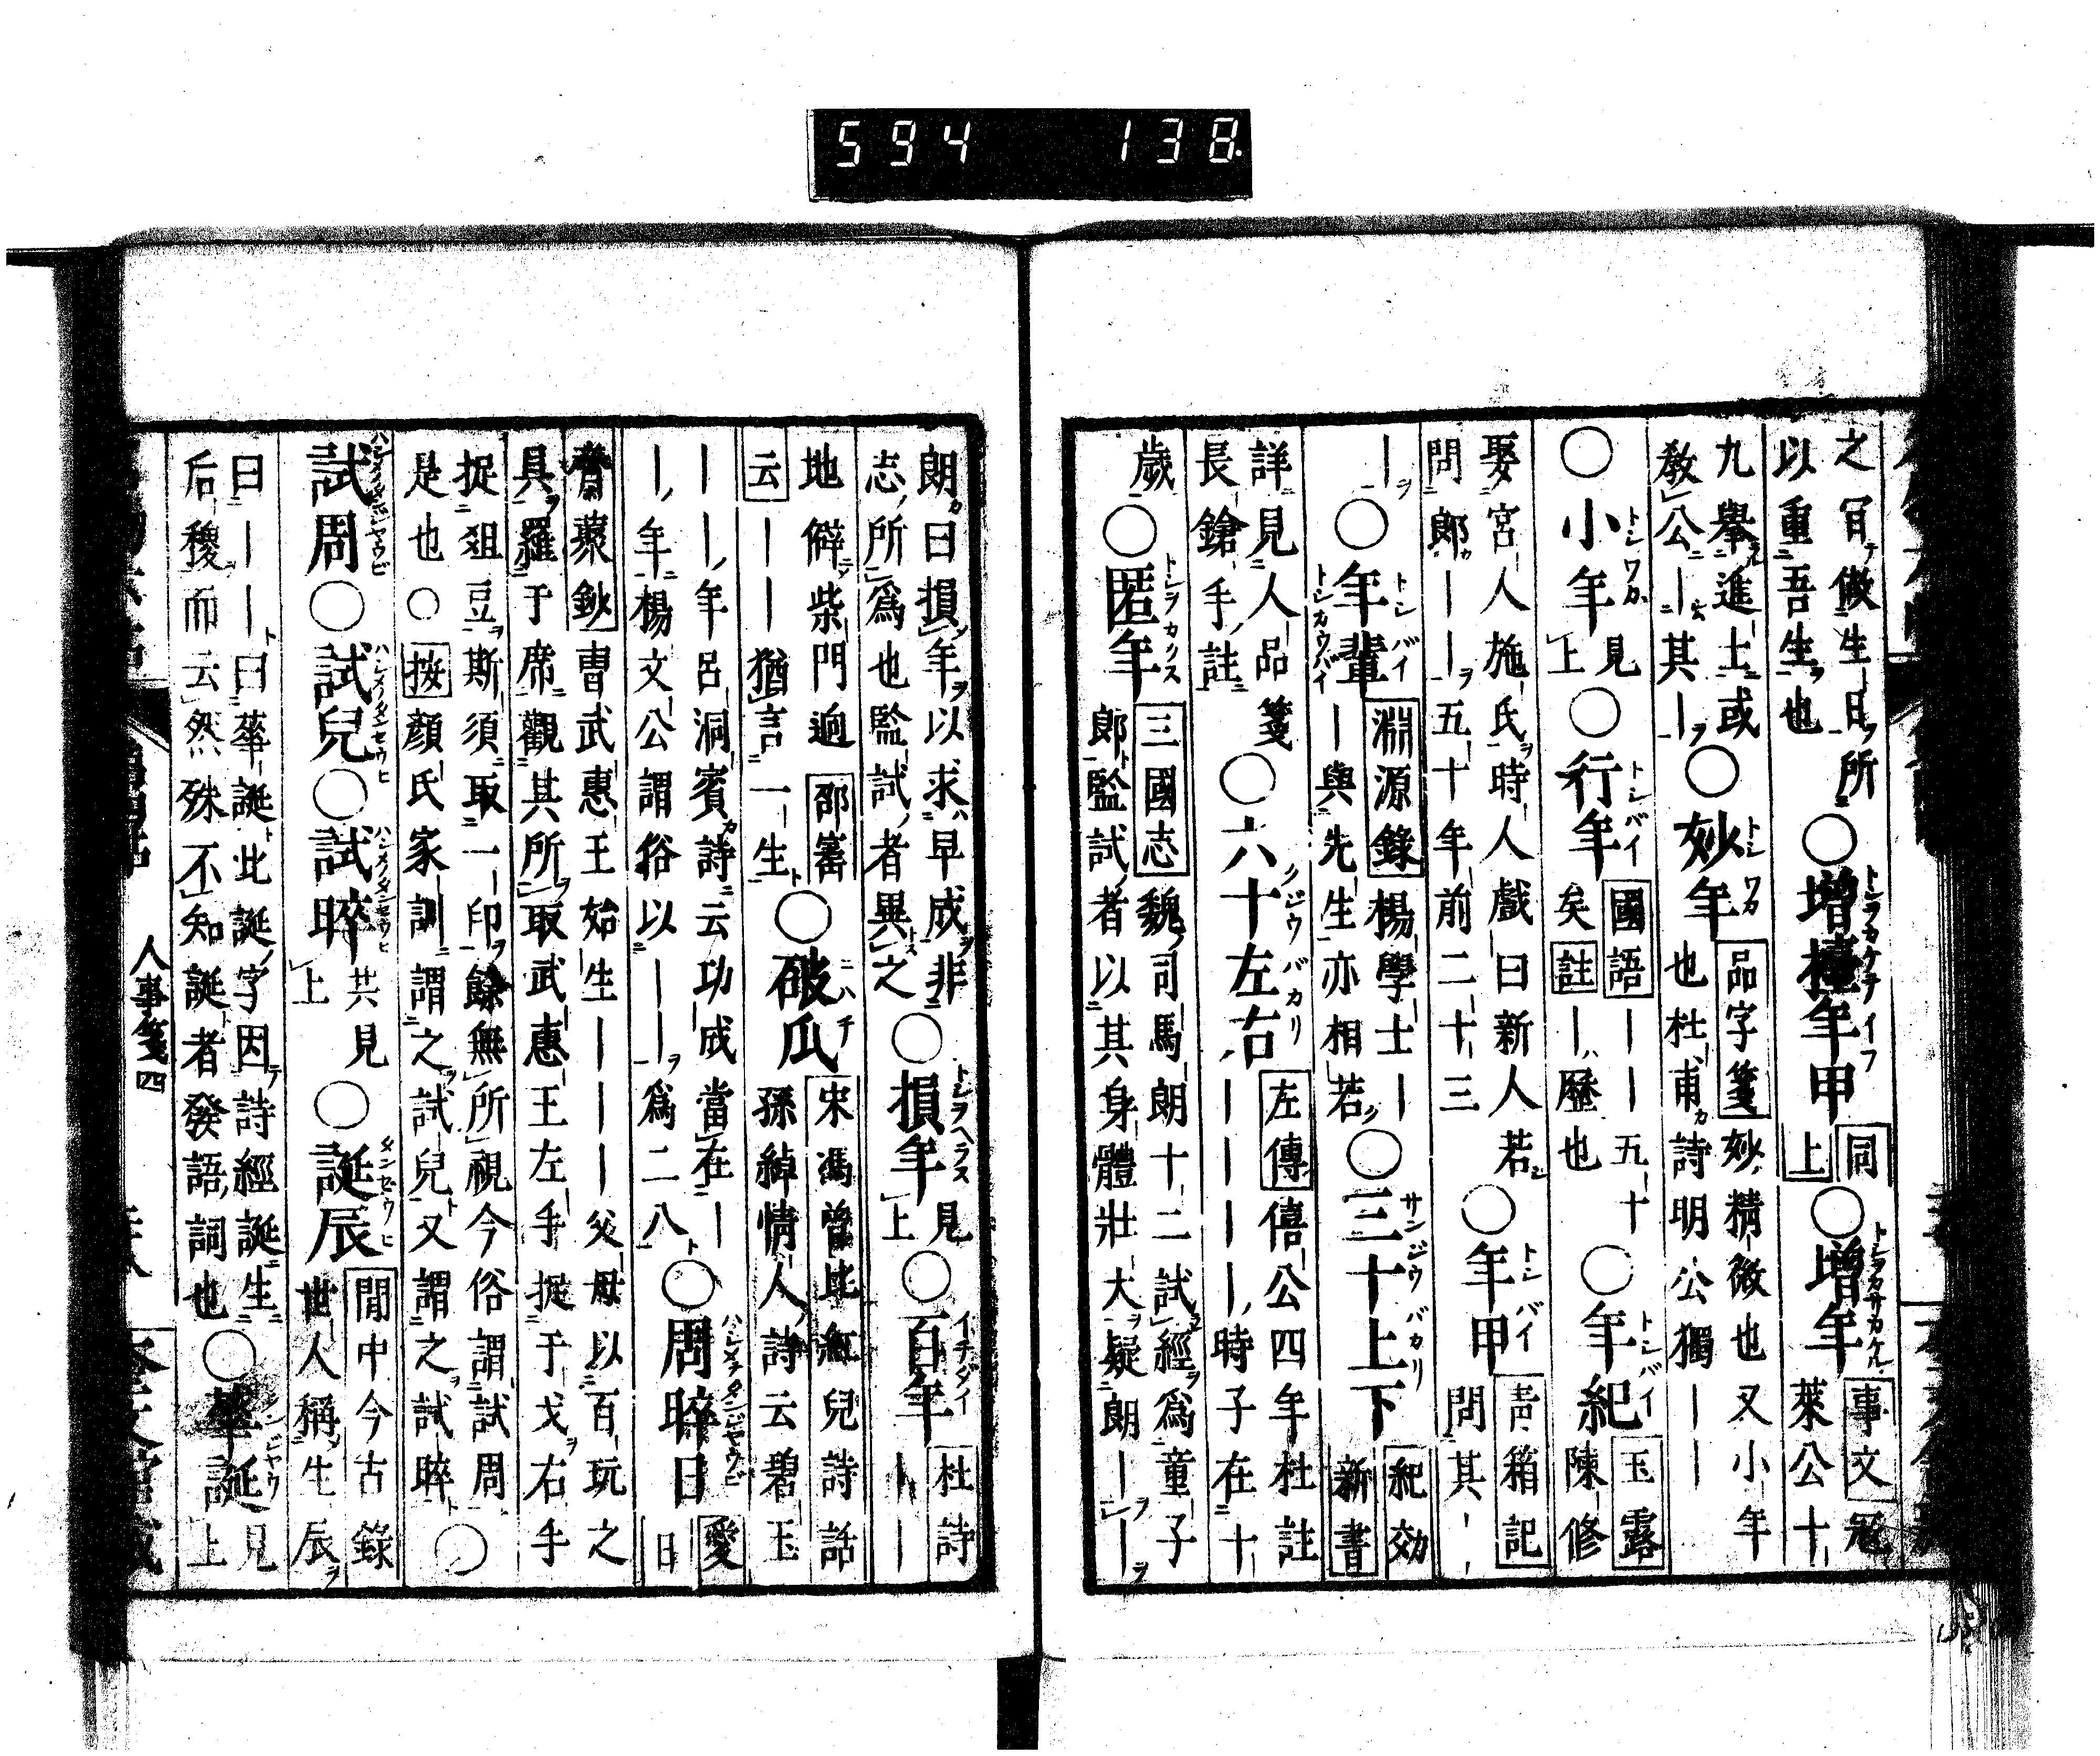 594 138
之官倣生日所
以重吾生也
○増撞年甲 同上
○増年 事文 冠萊公十
九擧進士或
教公ーー其ー
○妙年 品字箋 妙精微也又小年
也杜甫詩明公獨ーー
○小年 見上
○行年 國語 ーー五十
矣 註 ー歴也
○年紀 玉露 陳修
娶宮人施氏時人戯曰新人若
問郎ーーー五十年前二十三
○年甲 靑箱記 問其ーー
ー
○年輩 淵源錄 楊學士ー
ー與先生亦相若
○三十上下 紀効新書
詳見人品箋
長鎗手註
○六十左右 左傳 僖公四年杜註
ーーーー時子在十
歲
○匿年 三國志 魏司馬朗十二試經爲童子
郎監試者以其身體壯大疑朗ーー
朗曰損年以求早成非
志所爲也監試者異之
○損年 見上
○百年 杜詩 ーー
地僻柴門逈 邵審
云 ーーー猶言一生
○破瓜 宋馮曾比紅兒詩話
孫綽情人詩云碧玉
ーー年呂洞賓詩云功成當在ー
ー年楊文公謂俗以ーー爲二八
○周晬日 愛日
齋藂鈔 曹武惠王始生ーーー父母以百玩之
具羅于席觀其所取武惠王左手捉于戈右手
捉俎豆斯須取一印餘無所視今俗謂試周
是也○ 按 顏氏家訓謂之試兒又謂之試晬○
試周○試兒○試晬 共見上
○誕辰 閒中今古錄
世人稱生辰
曰ーー曰華誕此誕字因詩經誕生
后稷而云然殊不知誕者發語詞也
○華誕 見上
人事箋四